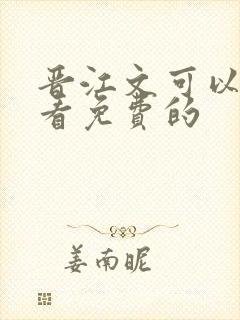 晋江文可以
看免费的
姜南昵